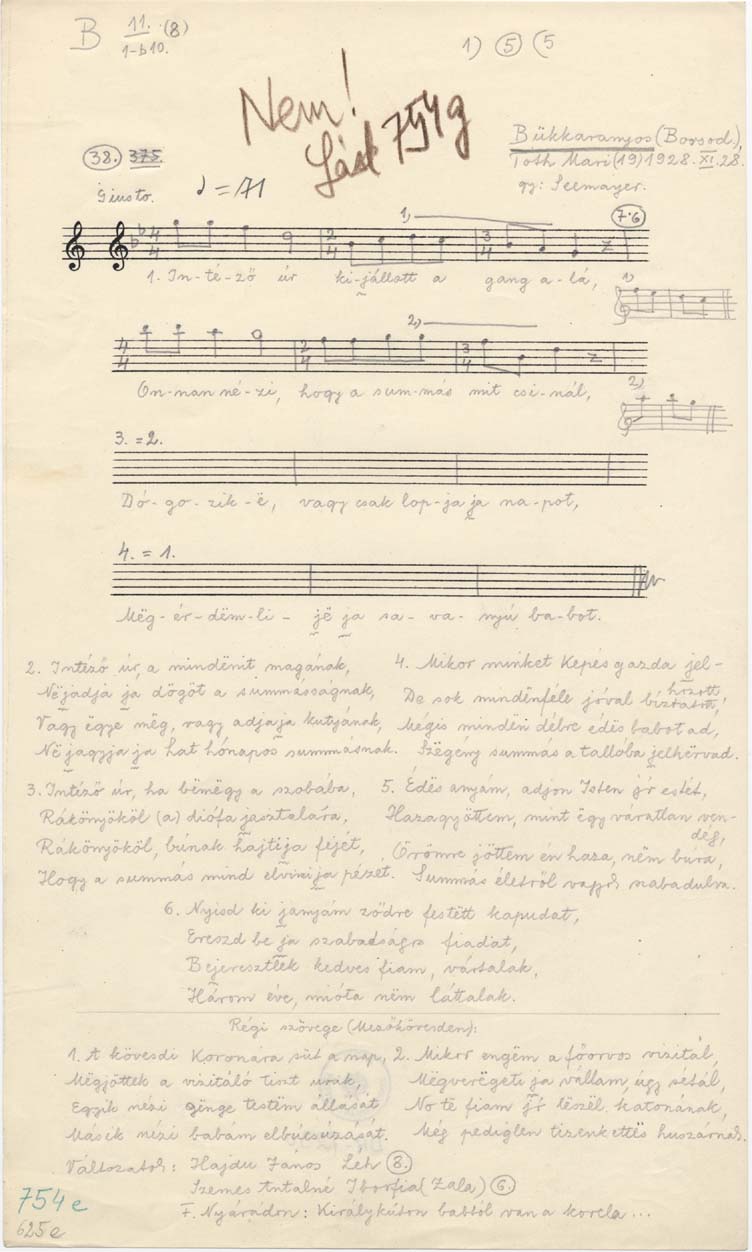 B 11. (8)
1-b10.
1) (5) (5
Nem!
Lásd 754g
38. 375.
Bükkaranyos (Borsod),
Tóth Mari (19) 1928. XI. 28.
gy: Seemayer.
Giusto. ♩ = 71
1)
7·6
1. In-té-ző úr ki-jállott a gang a-lá,
1)
2)
On-nan né-zi, hogy a sum-más mit csi-nál,
2)
3. = 2.
Dó-go-zik-ë, vagy csak lop-ja ja na-pot,
4. = 1.
Mëg-ér-dëm-li-jë ja sa-va-nyú ba-bot.
2. Intéző úr, a mindënit magának,
Në jadjá ja dögöt a summásságnak,
Vagy ëgye mëg, vagy adja ja kutyának,
Në jagyja ja hat hónapos summásnak.
3. Intéző úr, ha bëmëgy a szobába,
Rákönyököl (a) diófa jasztalára,
Rákönyököl, búnak hajtija fejét,
Hogy a summás mind elviszi ja pézët.
4. Mikor minket Képës gazda jel-
hozott,
De sok mindënféle jóval bíztatott,
Mégis mindën délbe édës babot ad,
Szëgény summás a tallóba jelhërvad.
5. Édës anyám, adjon Isten jó estét,
Hazagyöttem, mint ëgy váratlan ven-
dég,
Örömre jöttem én haza, nëm búra,
Summás életről vagyok szabadulva.
6. Nyisd ki janyám ződre festëtt kapudat,
Ereszd be ja szabadságos fiadat,
Bejeresztlek kedves fiam, vártalak,
Három éve, mióta nëm láttalak.
Régi szövege (Mezőkövesden):
1. A kövesdi Koronára süt a nap,
Mëgjöttek a vizitáló tiszt urak,
Egyik nézi gënge testëm állását
Másik nézi babám elbúcsúzását.
2. Mikor engëm a főorvos vizitál,
Mëgverëgeti ja vállam, úgy sétál,
No të fiam jó lëszël katonának,
Még pediglen tizenkettës huszárnak.
Változatok: Hajdu János Léh (8.)
Szemes Antalné Iborfia (Zala) (6.)
F. Nyárádon: Királykúton babból van a korcla ...
754 e
625 e